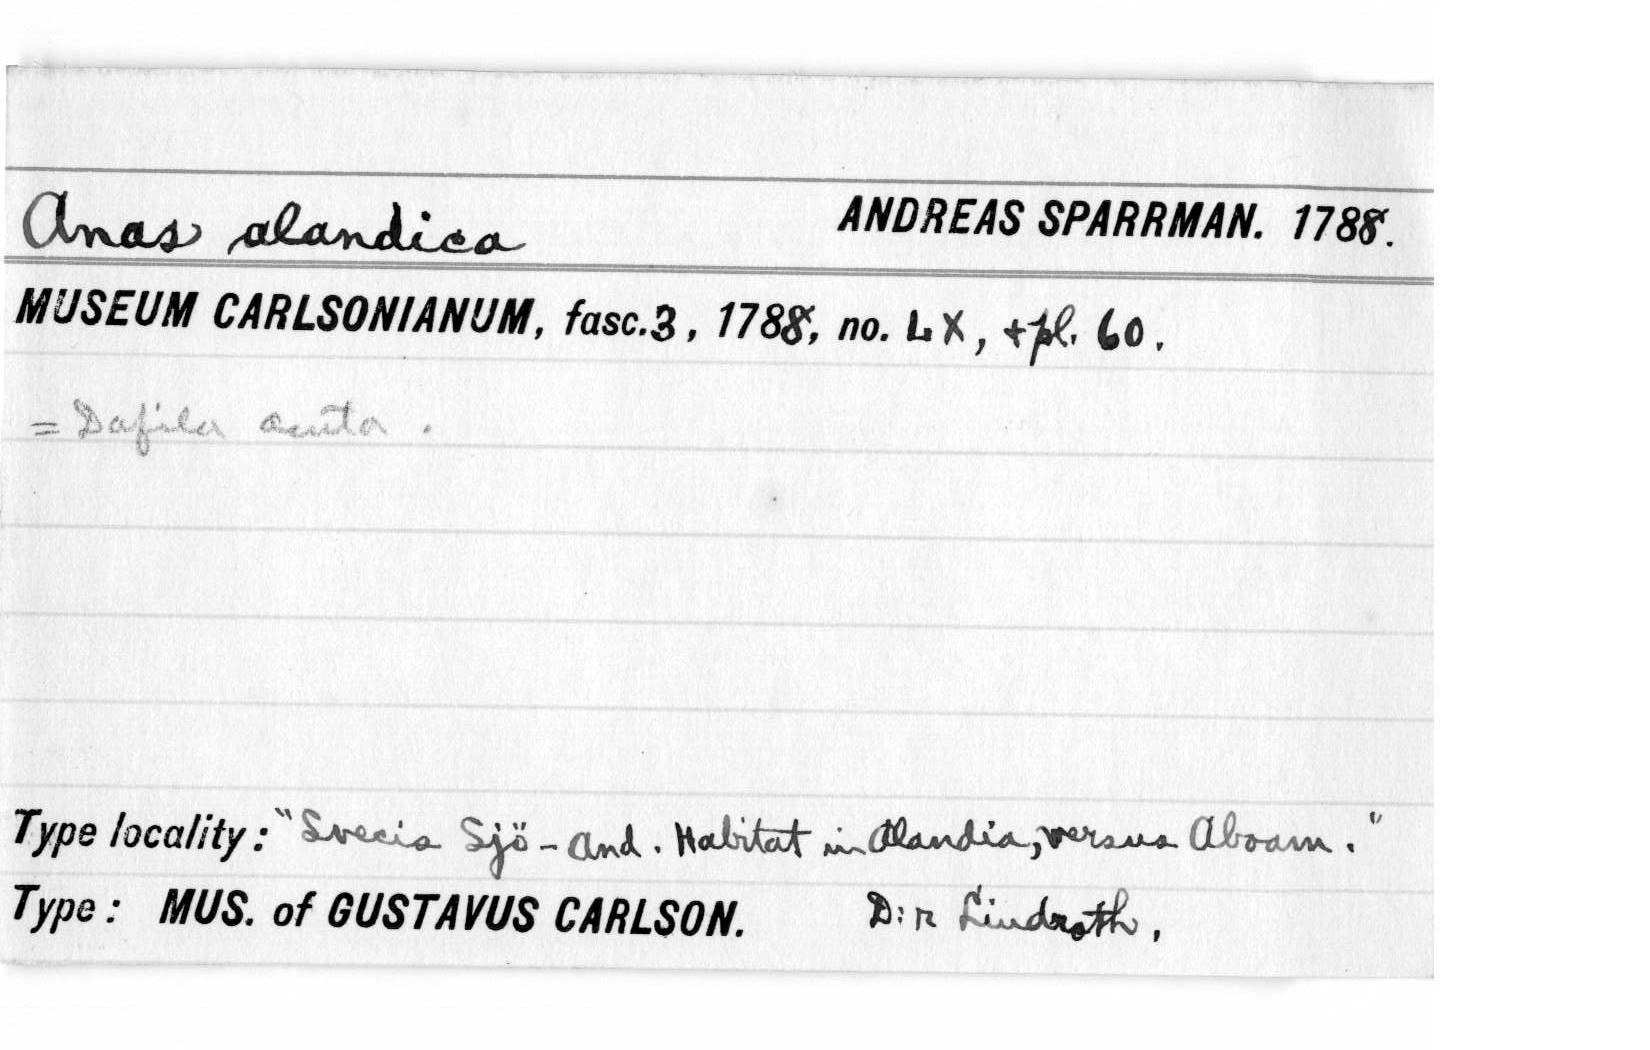 Anas alandica ANDREAS SPARRMAN. 1788.
MUSEUM CARLSONIANUM, fasc. 3, 1788, no. LX, + pl. 60.
= Dafila acuta.
Type locality: "Svecis Sjö-and. Habitat in Alandia, versus Aboam."
Type: MUS. of GUSTAVUS CARLSON. D:r Lindroth,